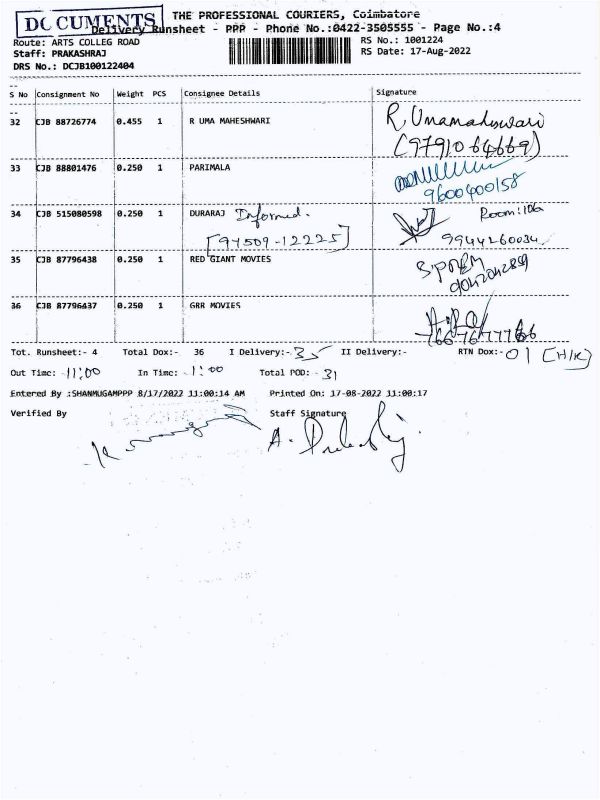 DOCUMENTS
THE PROFESSIONAL COURIERS, Coimbatore
Delivery Runsheet - PPP - Phone No.:0422-3505555 - Page No.:4
Route: ARTS COLLEG ROAD
RS No.: 1001224
Staff: PRAKASHRAJ
RS Date: 17-Aug-2022
DRS No.: DCJB100122404
S No Consignment No Weight PCS Consignee Details Signature
32 CJB 88726774 0.455 1 R UMA MAHESHWARI R. Umamaheswari
(9791064669)
33 CJB 88801476 0.250 1 PARIMALA
9600400158
34 CJB 515080598 0.250 1 DURARAJ Informed. Room:106
[97509-12225] 9944260034
35 CJB 87796438 0.250 1 RED GIANT MOVIES S.PREM
36 CJB 87796437 0.250 1 GRR MOVIES
Tot. Runsheet:- 4 Total Dox:- 36 I Delivery:- 35 II Delivery:- RTN Dox:- 01 [H/K]
Out Time: - 11:00 In Time: - 1:00 Total POD: - 31
Entered By :SHANMUGAMPPP 8/17/2022 11:00:14 AM Printed On: 17-08-2022 11:00:17
Verified By Staff Signature